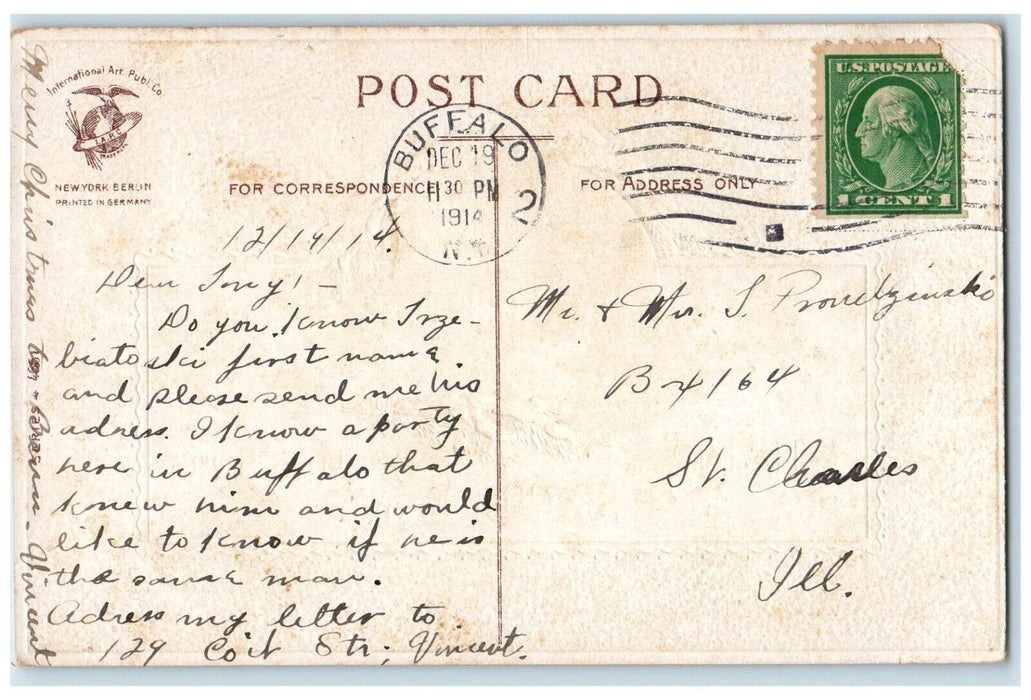 International Art. Publ. Co.
I.A.P.C.
NEW YORK BERLIN
PRINTED IN GERMANY
POST CARD
FOR CORRESPONDENCE
FOR ADDRESS ONLY
BUFFALO
DEC 19
11 30 PM
1914
N.Y.
2
U.S. POSTAGE
1 CENT 1
12/19/14.
Dear Tony! -
Do you know Trze-
biatoski first name
and please send me his
adress. I know a party
here in Buffalo that
knew him and would
like to know if he is
the same man.
Adress my letter to
129 Coit Str; Vincent.
Merry Christmas
Vincent
Mr. & Mrs. T. Prondzinski
B 4164
St. Charles
Ill.